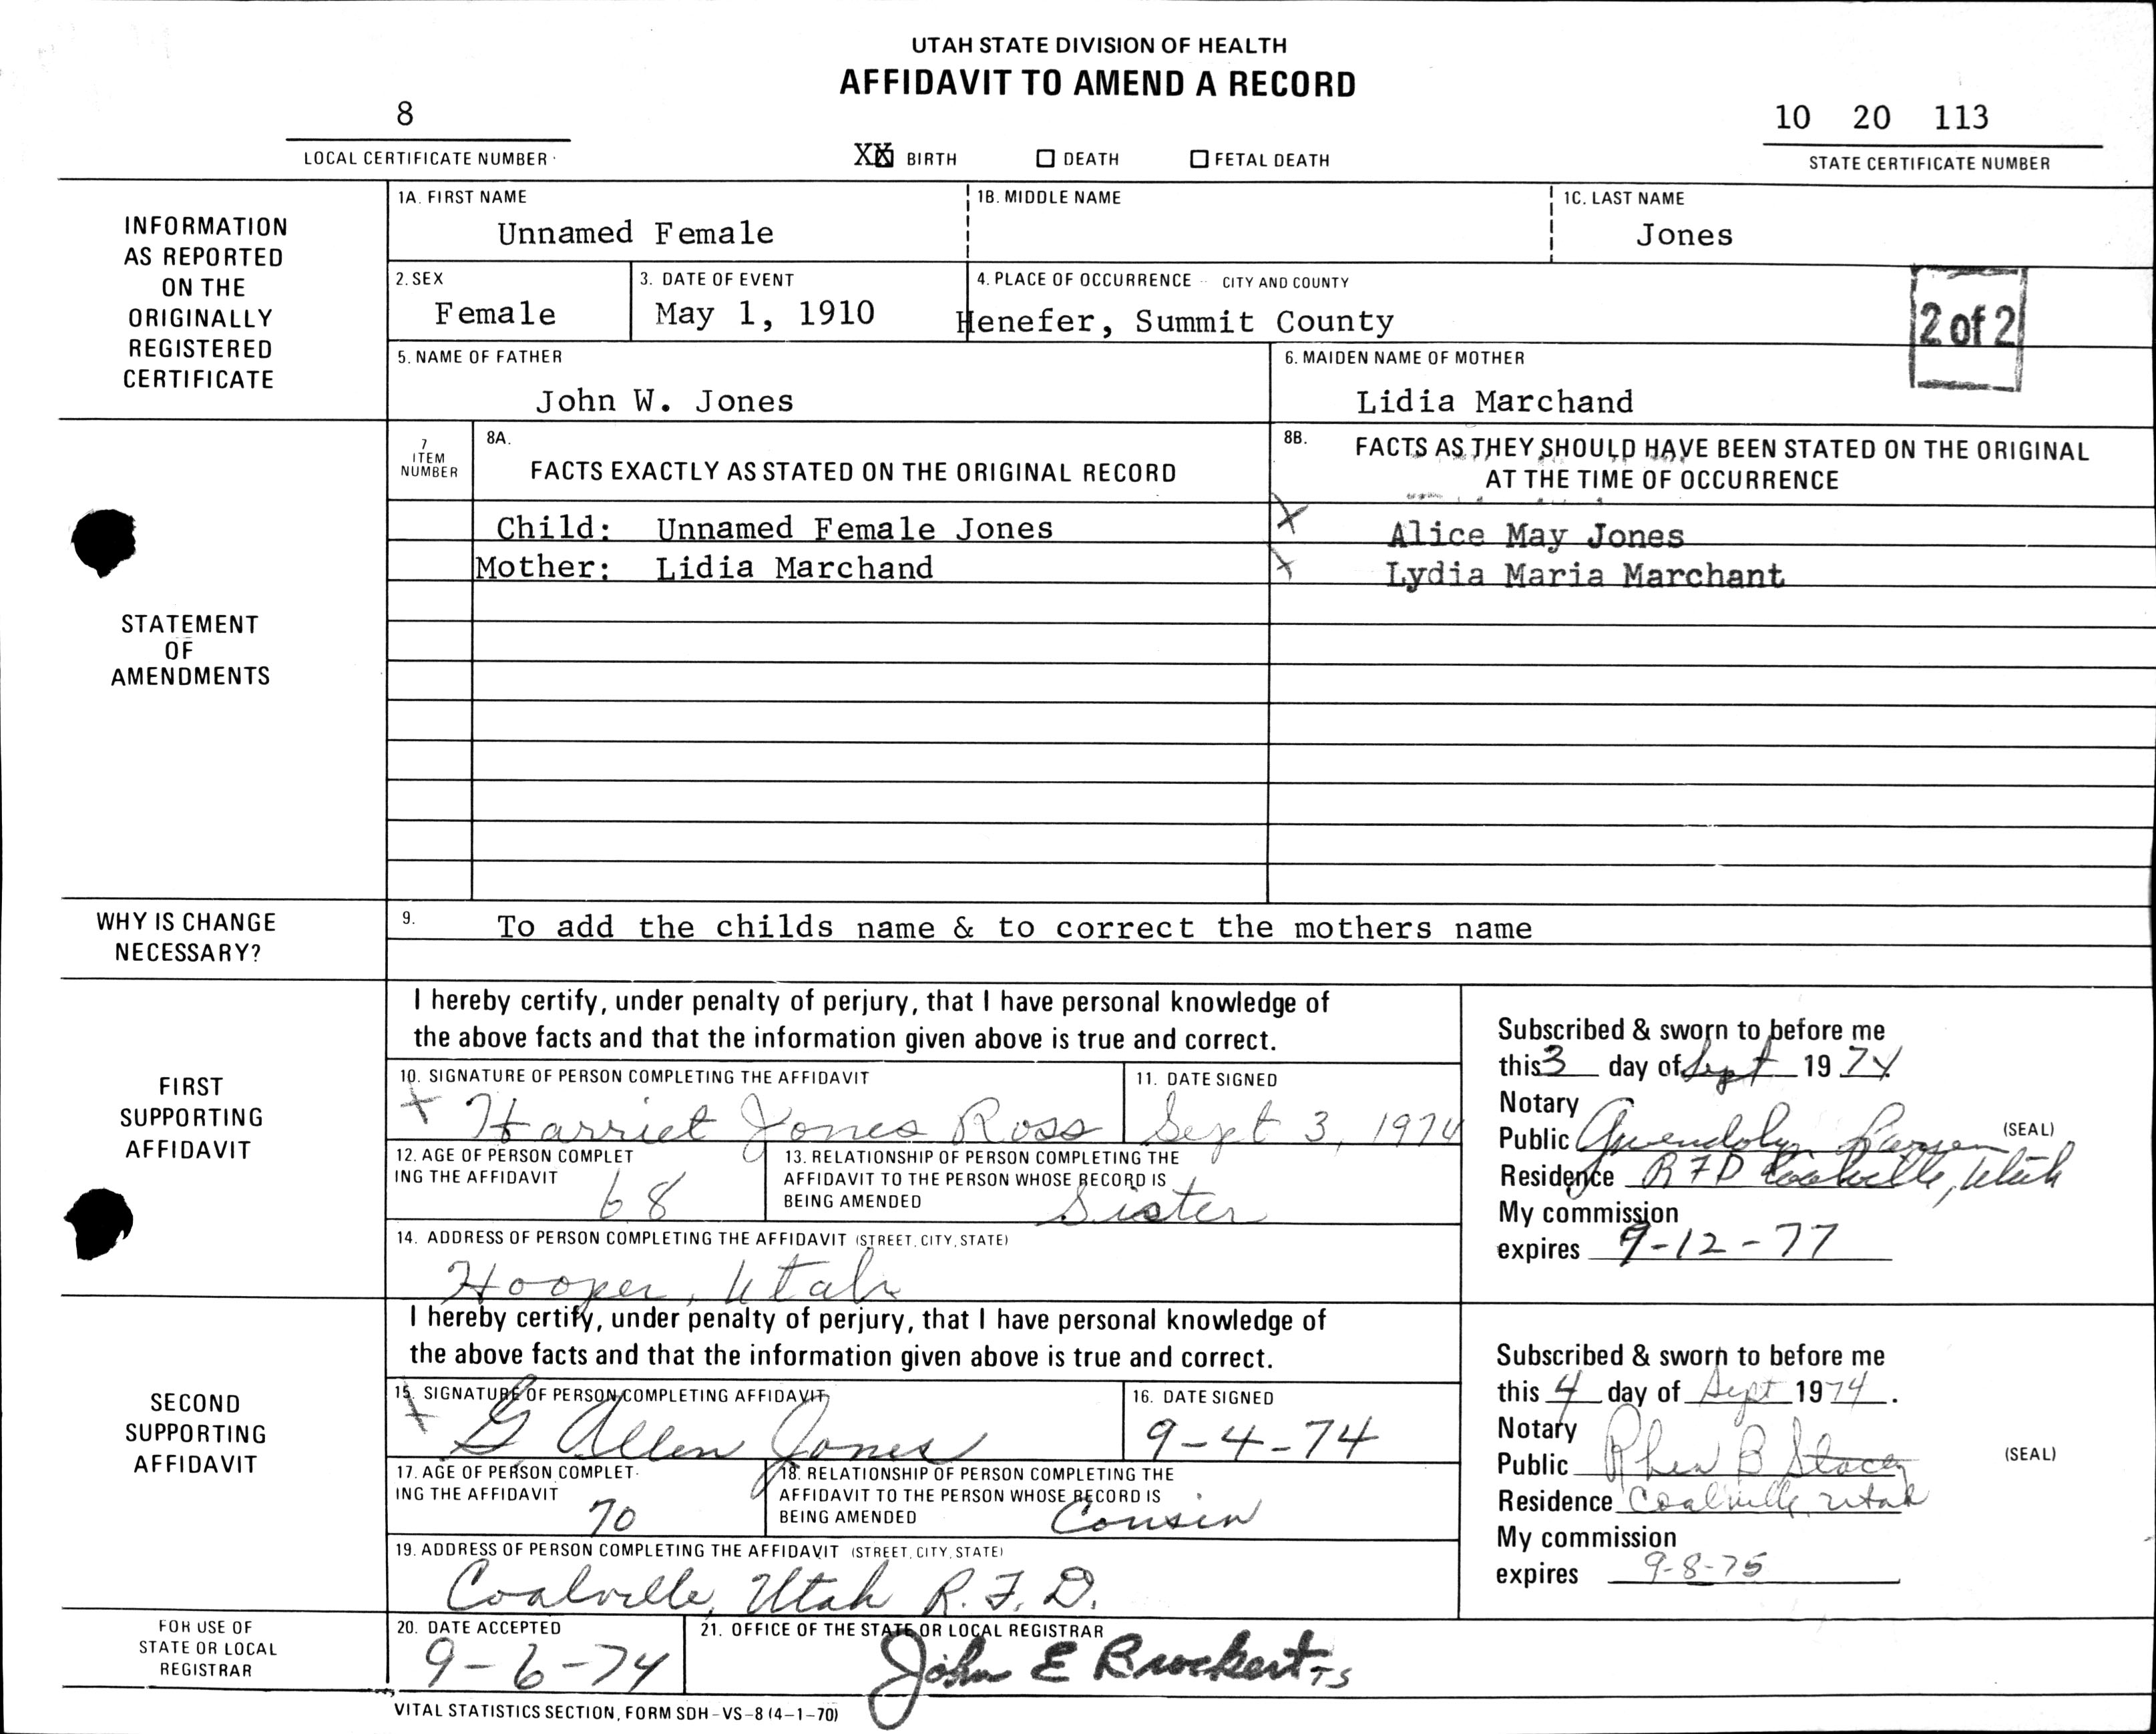 UTAH STATE DIVISION OF HEALTH
AFFIDAVIT TO AMEND A RECORD
8
10 20 113
LOCAL CERTIFICATE NUMBER
XX BIRTH
DEATH
FETAL DEATH
STATE CERTIFICATE NUMBER
INFORMATION
AS REPORTED
ON THE
ORIGINALLY
REGISTERED
CERTIFICATE
1A. FIRST NAME
Unnamed Female
1B. MIDDLE NAME
1C. LAST NAME
Jones
2. SEX
Female
3. DATE OF EVENT
May 1, 1910
4. PLACE OF OCCURRENCE - CITY AND COUNTY
Henefer, Summit County
2 of 2
5. NAME OF FATHER
John W. Jones
6. MAIDEN NAME OF MOTHER
Lidia Marchand
STATEMENT
OF
AMENDMENTS
7
ITEM
NUMBER
8A.
FACTS EXACTLY AS STATED ON THE ORIGINAL RECORD
8B.
FACTS AS THEY SHOULD HAVE BEEN STATED ON THE ORIGINAL
AT THE TIME OF OCCURRENCE
Child: Unnamed Female Jones
X Alice May Jones
Mother: Lidia Marchand
X Lydia Maria Marchant
WHY IS CHANGE
NECESSARY?
9. To add the childs name & to correct the mothers name
FIRST
SUPPORTING
AFFIDAVIT
I hereby certify, under penalty of perjury, that I have personal knowledge of
the above facts and that the information given above is true and correct.
10. SIGNATURE OF PERSON COMPLETING THE AFFIDAVIT
X Harriet Jones Ross
11. DATE SIGNED
Sept 3, 1974
12. AGE OF PERSON COMPLET
ING THE AFFIDAVIT
68
13. RELATIONSHIP OF PERSON COMPLETING THE
AFFIDAVIT TO THE PERSON WHOSE RECORD IS
BEING AMENDED
Sister
14. ADDRESS OF PERSON COMPLETING THE AFFIDAVIT (STREET, CITY, STATE)
Hooper, Utah
Subscribed & sworn to before me
this 3 day of Sept 19 74
Notary
Public Gwendolyn Larsen (SEAL)
Residence R F D Coalville, Utah
My commission
expires 9-12-77
SECOND
SUPPORTING
AFFIDAVIT
I hereby certify, under penalty of perjury, that I have personal knowledge of
the above facts and that the information given above is true and correct.
15. SIGNATURE OF PERSON COMPLETING AFFIDAVIT
X G Allen Jones
16. DATE SIGNED
9-4-74
17. AGE OF PERSON COMPLET-
ING THE AFFIDAVIT
70
18. RELATIONSHIP OF PERSON COMPLETING THE
AFFIDAVIT TO THE PERSON WHOSE RECORD IS
BEING AMENDED
Cousin
19. ADDRESS OF PERSON COMPLETING THE AFFIDAVIT (STREET, CITY, STATE)
Coalville, Utah R. F. D.
Subscribed & sworn to before me
this 4 day of Sept 1974.
Notary
Public Rhea B Stacey (SEAL)
Residence Coalville, Utah
My commission
expires 9-8-75
FOR USE OF
STATE OR LOCAL
REGISTRAR
20. DATE ACCEPTED
9-6-74
21. OFFICE OF THE STATE OR LOCAL REGISTRAR
John E Brockert TS
VITAL STATISTICS SECTION, FORM SDH-VS-8 (4-1-70)